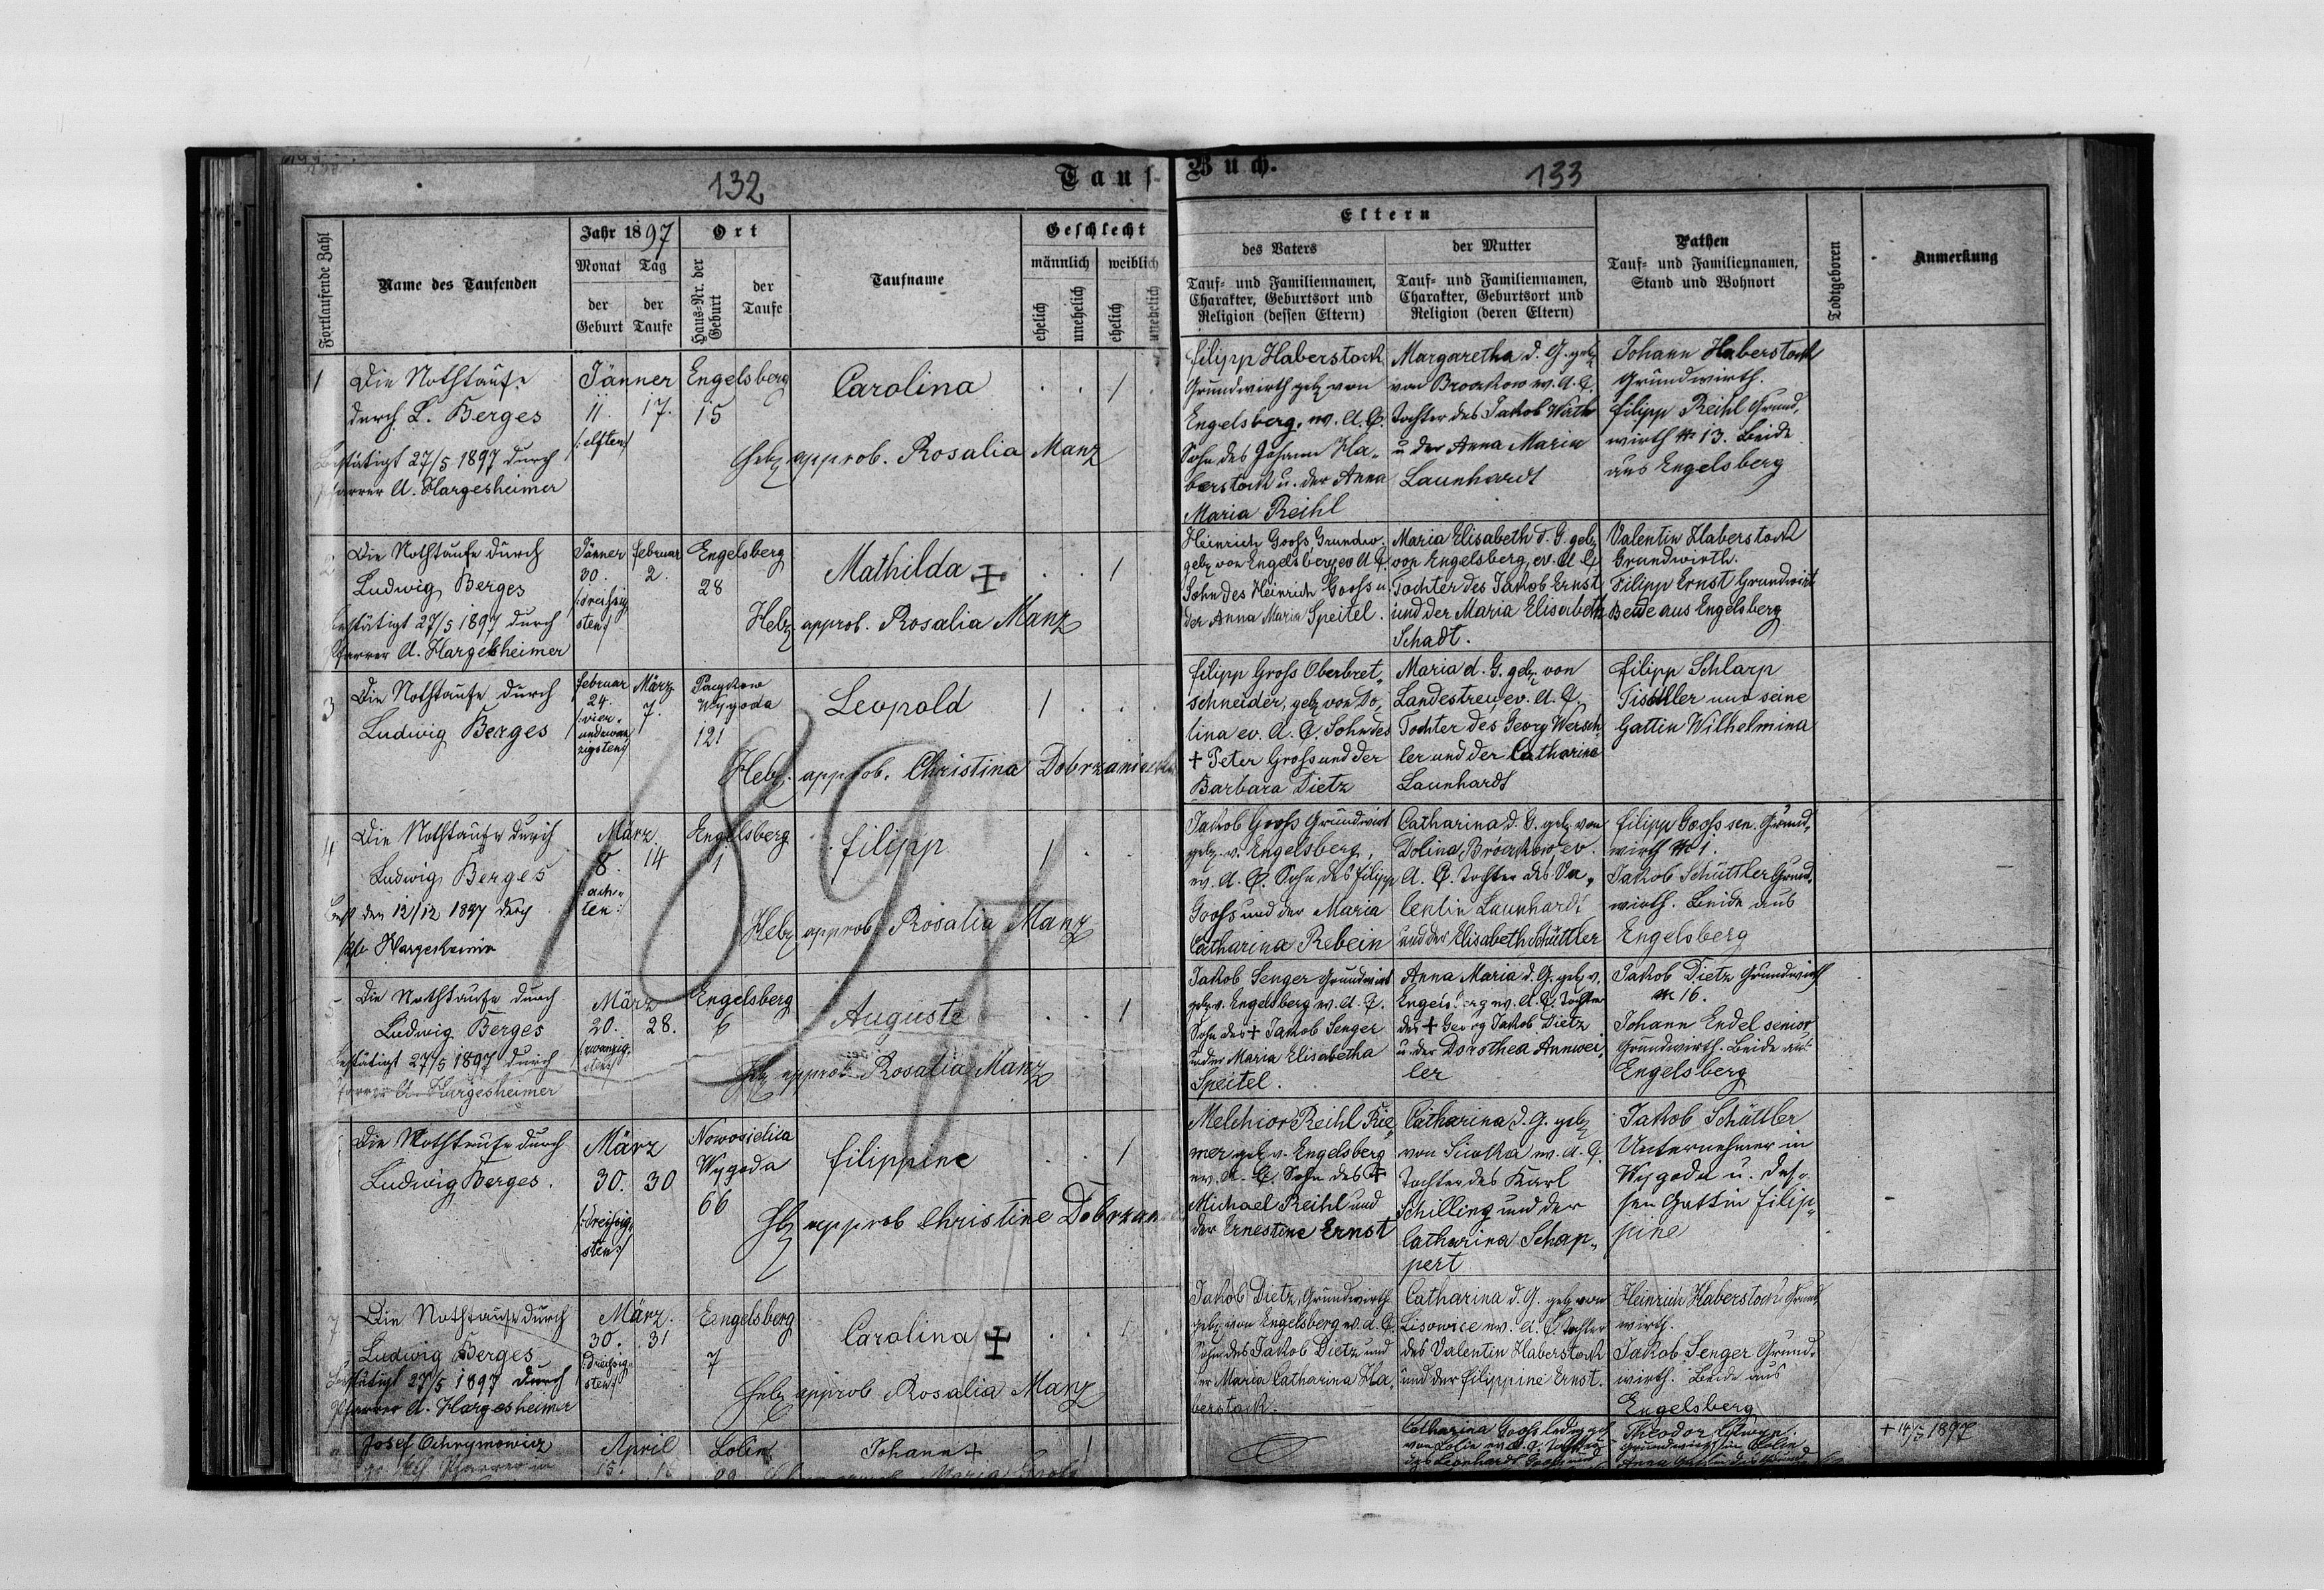 132
Tauf-
Buch.
133
Fortlaufende Zahl
Name des Taufenden
Jahr 1897
Monat
Tag
der Geburt
der Taufe
Ort
Haus-Nr. der Geburt
der Taufe
Taufname
Geschlecht
männlich
weiblich
ehelich
unehelich
ehelich
unehelich
Eltern
des Vaters
Tauf- und Familiennamen,
Charakter, Geburtsort und
Religion (dessen Eltern)
der Mutter
Tauf- und Familiennamen,
Charakter, Geburtsort und
Religion (deren Eltern)
Pathen
Tauf- und Familiennamen,
Stand und Wohnort
Todtgeboren
Anmerkung
1
Die Nothtaufe
durch L. Berges
Bestätigt 27/5 1897 durch
Pfarrer A. Hargesheimer
Jänner
11. 17.
/:elften:/
Engelsberg
15
Carolina
1
Heb. approb. Rosalia Manz
Filipp Haberstock
Grundwirth geb. von
Engelsberg, ev. A.C.
Sohn des Johann Ha-
berstock u. der Anna
Maria Reihl
Margaretha d. G. geb.
von Broczkow ev. A.C.
Tochter des Jakob Wirth
u der Anna Maria
Launhardt
Johann Haberstock
Grundwirth.
Filipp Reihl Grund-
wirth No 13. Beide
aus Engelsberg
2
Die Nothtaufe durch
Ludwig Berges
bestätigt 27/5 1897 durch
Pfarrer A. Hargesheimer
Jänner Februar
30. 2.
/:dreißig-
sten:/
Engelsberg
28
Mathilda +
1
Heb. approb. Rosalia Manz
Heinrich Gooss, Grundw.
geb. von Engelsberg ev A.C.
Sohn des Heinrich Gooss u
der Anna Maria Speitel.
Maria Elisabeth d. G. geb.
von Engelsberg, ev. A.C.
Tochter des Jakob Ernst
und der Maria Elisabeth
Schadt.
Valentin Haberstock
Grundwirth.
Filipp Ernst Grundwirt
Beide aus Engelsberg
3
Die Nothtaufe durch
Ludwig Berges
Februar März
24. 7.
/:vier-
undzwan-
zigsten:/
Pacykow
Wygoda
121
Leopold
1
Heb. approb. Christina
Filipp Gross Oberbret-
schneider, geb. von Do-
lina ev. A.C. Sohn des
+ Peter Gross und der
Barbara Dietz
Maria d. G. geb. von
Landestreu, ev. A.C.
Tochter des Georg Wersch-
ler und der Catharina
Launhardt
Filipp Schlarp
Tischler und seine
Gattin Wilhelmina
4
Die Nothtaufe durch
Ludwig Berges
Best den 12/12 1897 durch
Hargesheimer
März
8. 14
/:ach-
ten:/
Engelsberg
1
Filipp
1
Heb. approb. Rosalia Manz
Jakob Gooss Grundwirt
geb. v. Engelsberg,
ev. A.C. Sohn des Filipp
Gooss und der Maria
Catharina Rebein
Catharina d. G. geb. von
Dolina Broczkow ev.
A.C. Tochter des Va-
lentin Launhardt
und der Elisabeth Schüttler
Filipp Gooss sen. Grund-
wirth No 1.
Jakob Schüttler Grund-
wirth. Beide aus
Engelsberg
5
Die Nothtaufe durch
Ludwig Berges
Bestätigt 27/5 1897 durch
Pfarrer A. Hargesheimer
März
20. 28.
/:zwanzig-
sten:/
Engelsberg
6
Auguste
1
Heb. approb. Rosalia Manz
Jakob Senger Grundwirt
geb. v. Engelsberg ev. A.C.
Sohn des + Jakob Senger
u. der Maria Elisabetha
Speitel.
Anna Maria d. G. geb. v.
Engelsberg ev. A.C. Tochter
des + Georg Jakob Dietz
u. der Dorothea Annwei-
ler
Jakob Dietz Grundwirth
No 16.
Johann Endel senior
Grundwirth. Beide aus
Engelsberg
6
Die Nothtaufe durch
Ludwig Berges.
März
30. 30
/:dreißig-
sten:/
Nowosielica
Wygoda
66
Filippine
1
Hb. approb Christine
Melchior Reihl Rie-
mer geb. v. Engelsberg
ev. A.C. Sohn des +
Michael Reihl und
der Ernestine Ernst
Catharina d. G. geb.
von ev. A.C.
Tochter des Karl
Schilling und der
Catharina Schap-
pert
Jakob Schüttler
Unternehmer in
Wygoda u. des-
sen Gattin Filip-
pine
7
Die Nothtaufe durch
Ludwig Berges
Bestätigt 27/5 1897 durch
Pfarrer A. Hargesheimer
März.
30. 31
/:dreißig-
sten:/
Engelsberg
7
Carolina +
1
Heb. approb Rosalia Manz
Jakob Dietz, Grundwirth
geb. von Engelsberg ev. A.C.
Sohn des Jakob Dietz und
der Maria Catharina Ha-
berstock.
Catharina d. G. geb. von
Lisowice ev. A.C. Tochter
des Valentin Haberstock
und der Filippine Ernst.
Heinrich Haberstock Grund-
wirth.
Jakob Senger Grund-
wirth. Beide aus
Engelsberg
Josef Ochrymowicz
Pfarrer in
April
15.
Lolin
Johann +
1
Maria
Catharina Gooss ledig geb
von Lolin ev. A.C. Tochter
des Leonhardt Gooss und
Theodor
Grundwirth in Lolin
Anna
1897
1897